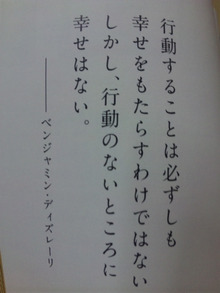 行動することは必ずしも
幸せをもたらすわけではない
しかし、行動のないところに
幸せはない。
――ベンジャミン・ディズレーリ